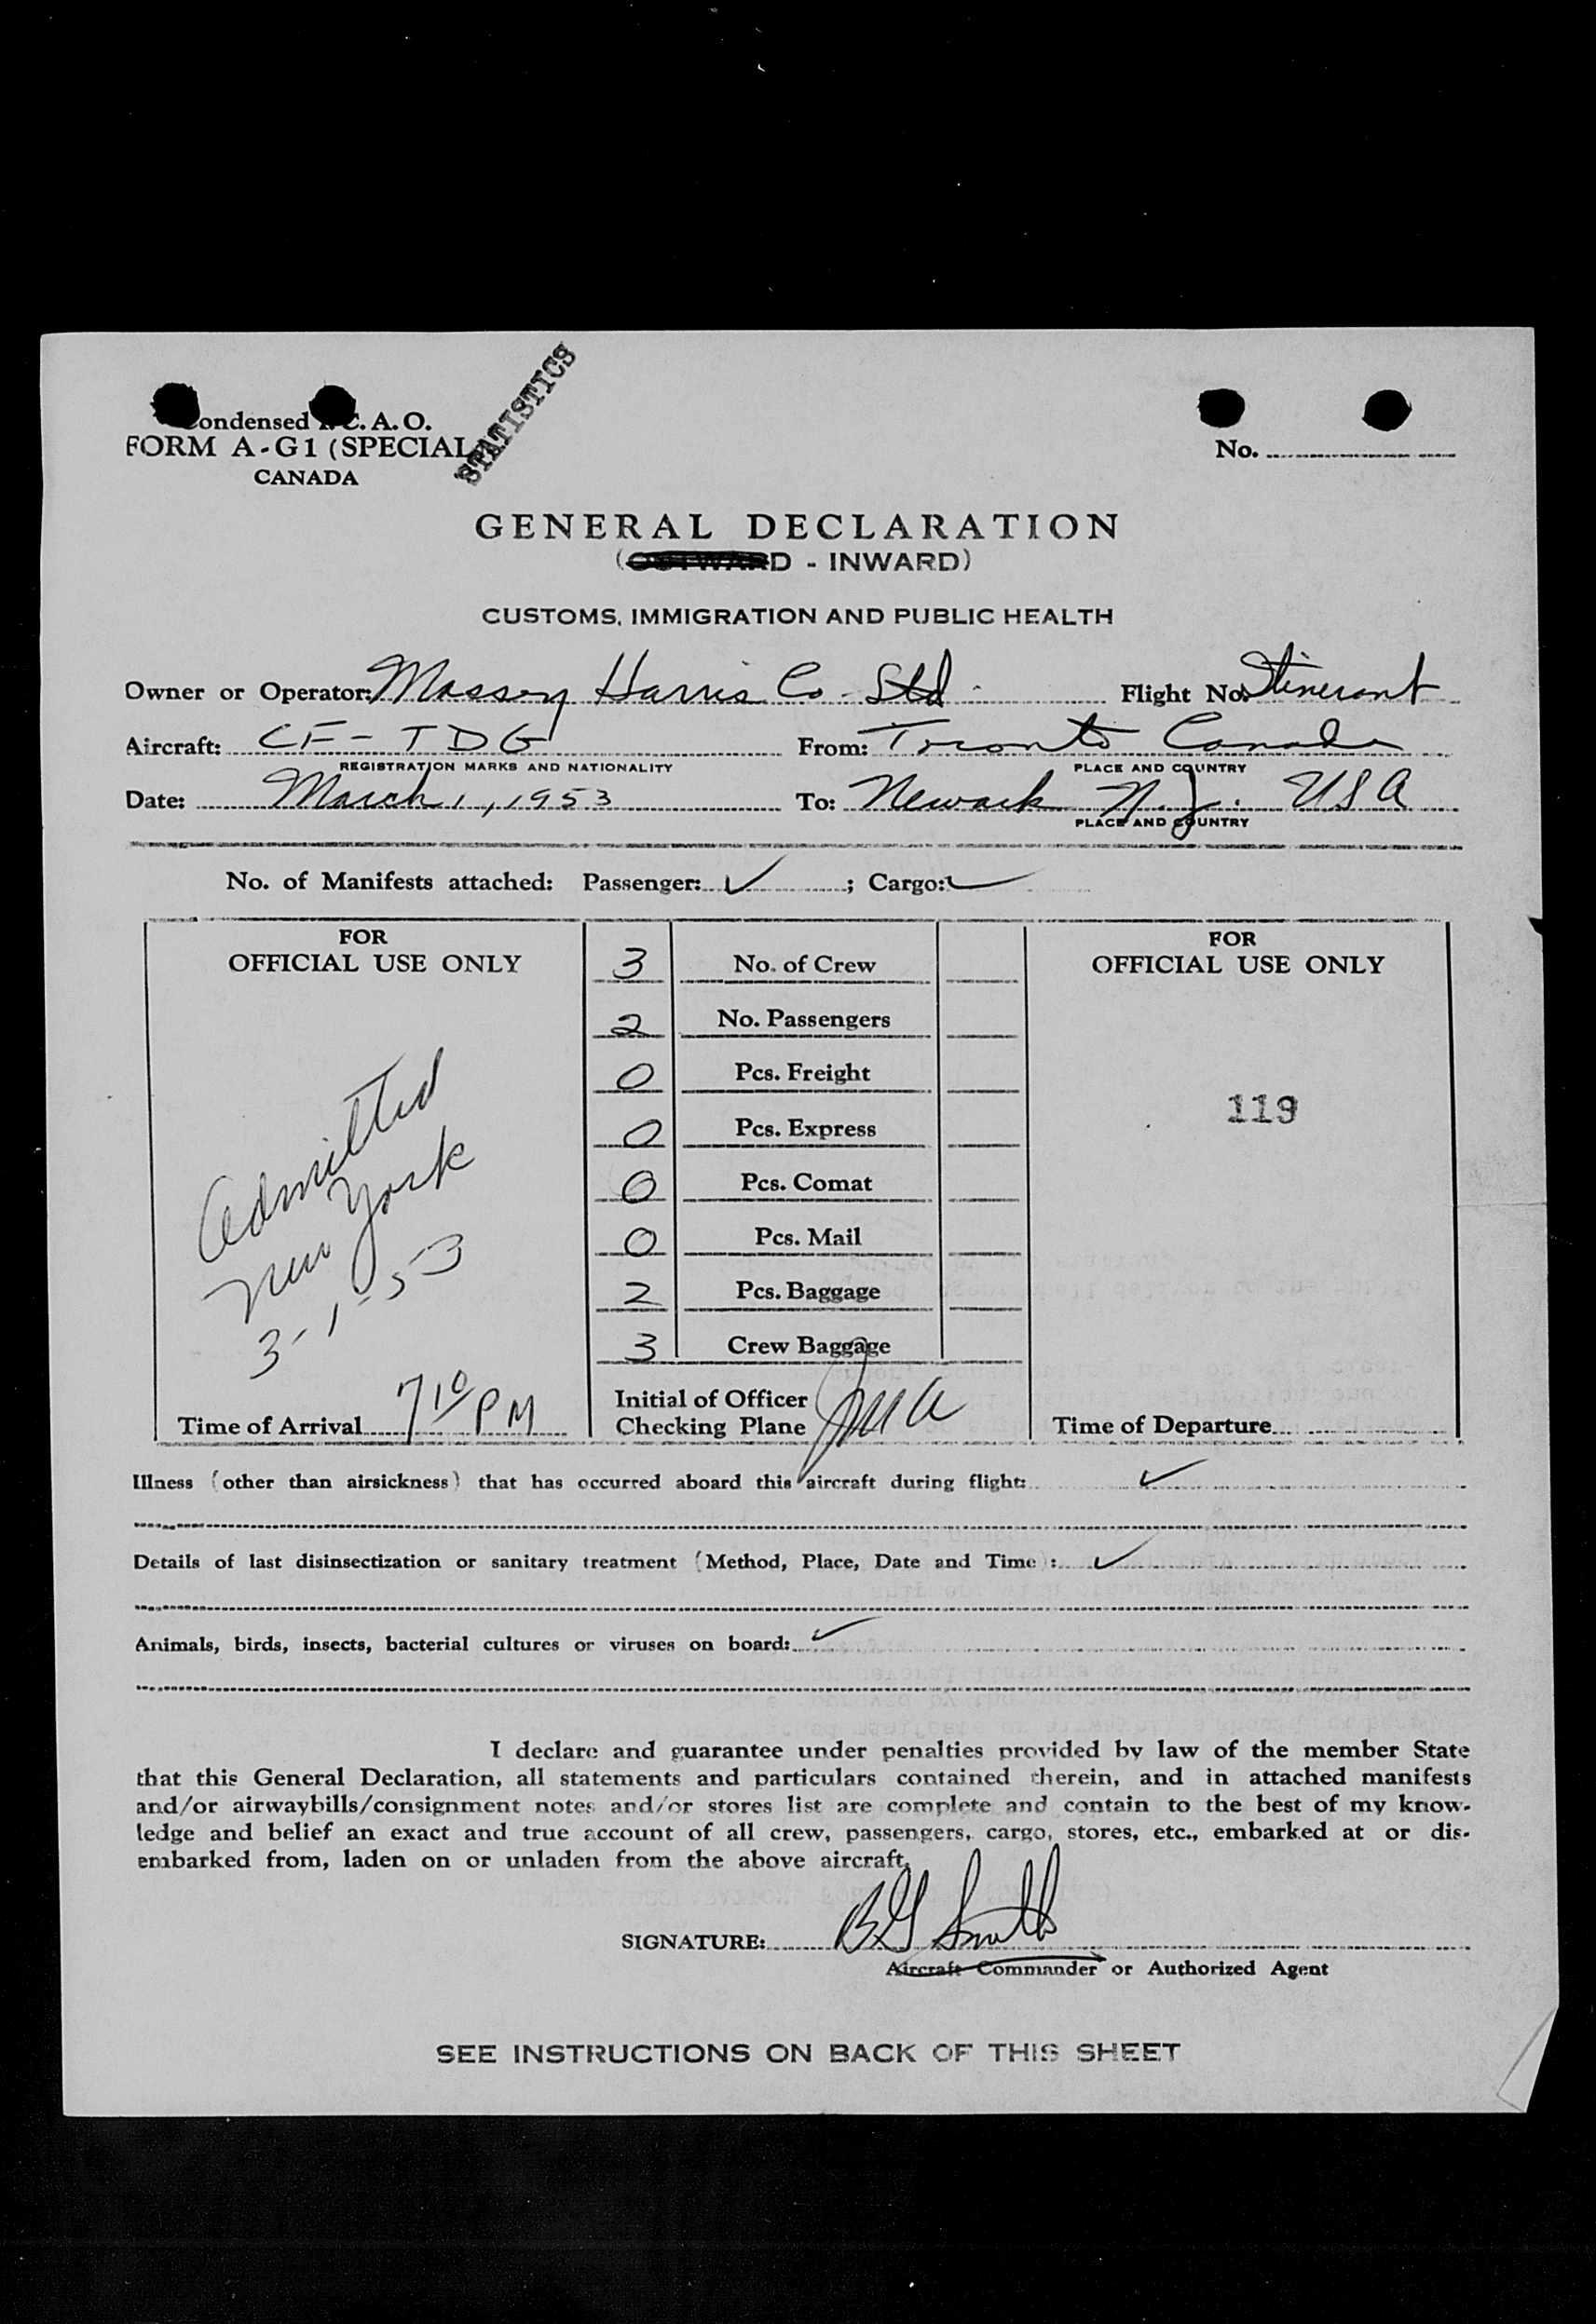 STATISTICS
Condensed I. C. A. O.
FORM A-G1 (SPECIAL)
CANADA
No.
GENERAL DECLARATION
(OUTWARD - INWARD)
CUSTOMS, IMMIGRATION AND PUBLIC HEALTH
Owner or Operator: Massey Harris Co. Ltd. Flight No. Itinerant
Aircraft: CF-TDG From: Toronto Canada
REGISTRATION MARKS AND NATIONALITY PLACE AND COUNTRY
Date: March 1, 1953 To: Newark N.J. USA
PLACE AND COUNTRY
No. of Manifests attached: Passenger: ✓ ; Cargo: ✓
FOR
OFFICIAL USE ONLY
Admitted
New York
3-1-53
Time of Arrival 7 10 PM
3 No. of Crew
2 No. Passengers
0 Pcs. Freight
0 Pcs. Express
0 Pcs. Comat
0 Pcs. Mail
2 Pcs. Baggage
3 Crew Baggage
Initial of Officer
Checking Plane
FOR
OFFICIAL USE ONLY
119
Time of Departure
Illness (other than airsickness) that has occurred aboard this aircraft during flight: ✓
Details of last disinsectization or sanitary treatment (Method, Place, Date and Time): ✓
Animals, birds, insects, bacterial cultures or viruses on board: ✓
I declare and guarantee under penalties provided by law of the member State
that this General Declaration, all statements and particulars contained therein, and in attached manifests
and/or airwaybills/consignment notes and/or stores list are complete and contain to the best of my know-
ledge and belief an exact and true account of all crew, passengers, cargo, stores, etc., embarked at or dis-
embarked from, laden on or unladen from the above aircraft.
SIGNATURE: BG Smith
Aircraft Commander or Authorized Agent
SEE INSTRUCTIONS ON BACK OF THIS SHEET